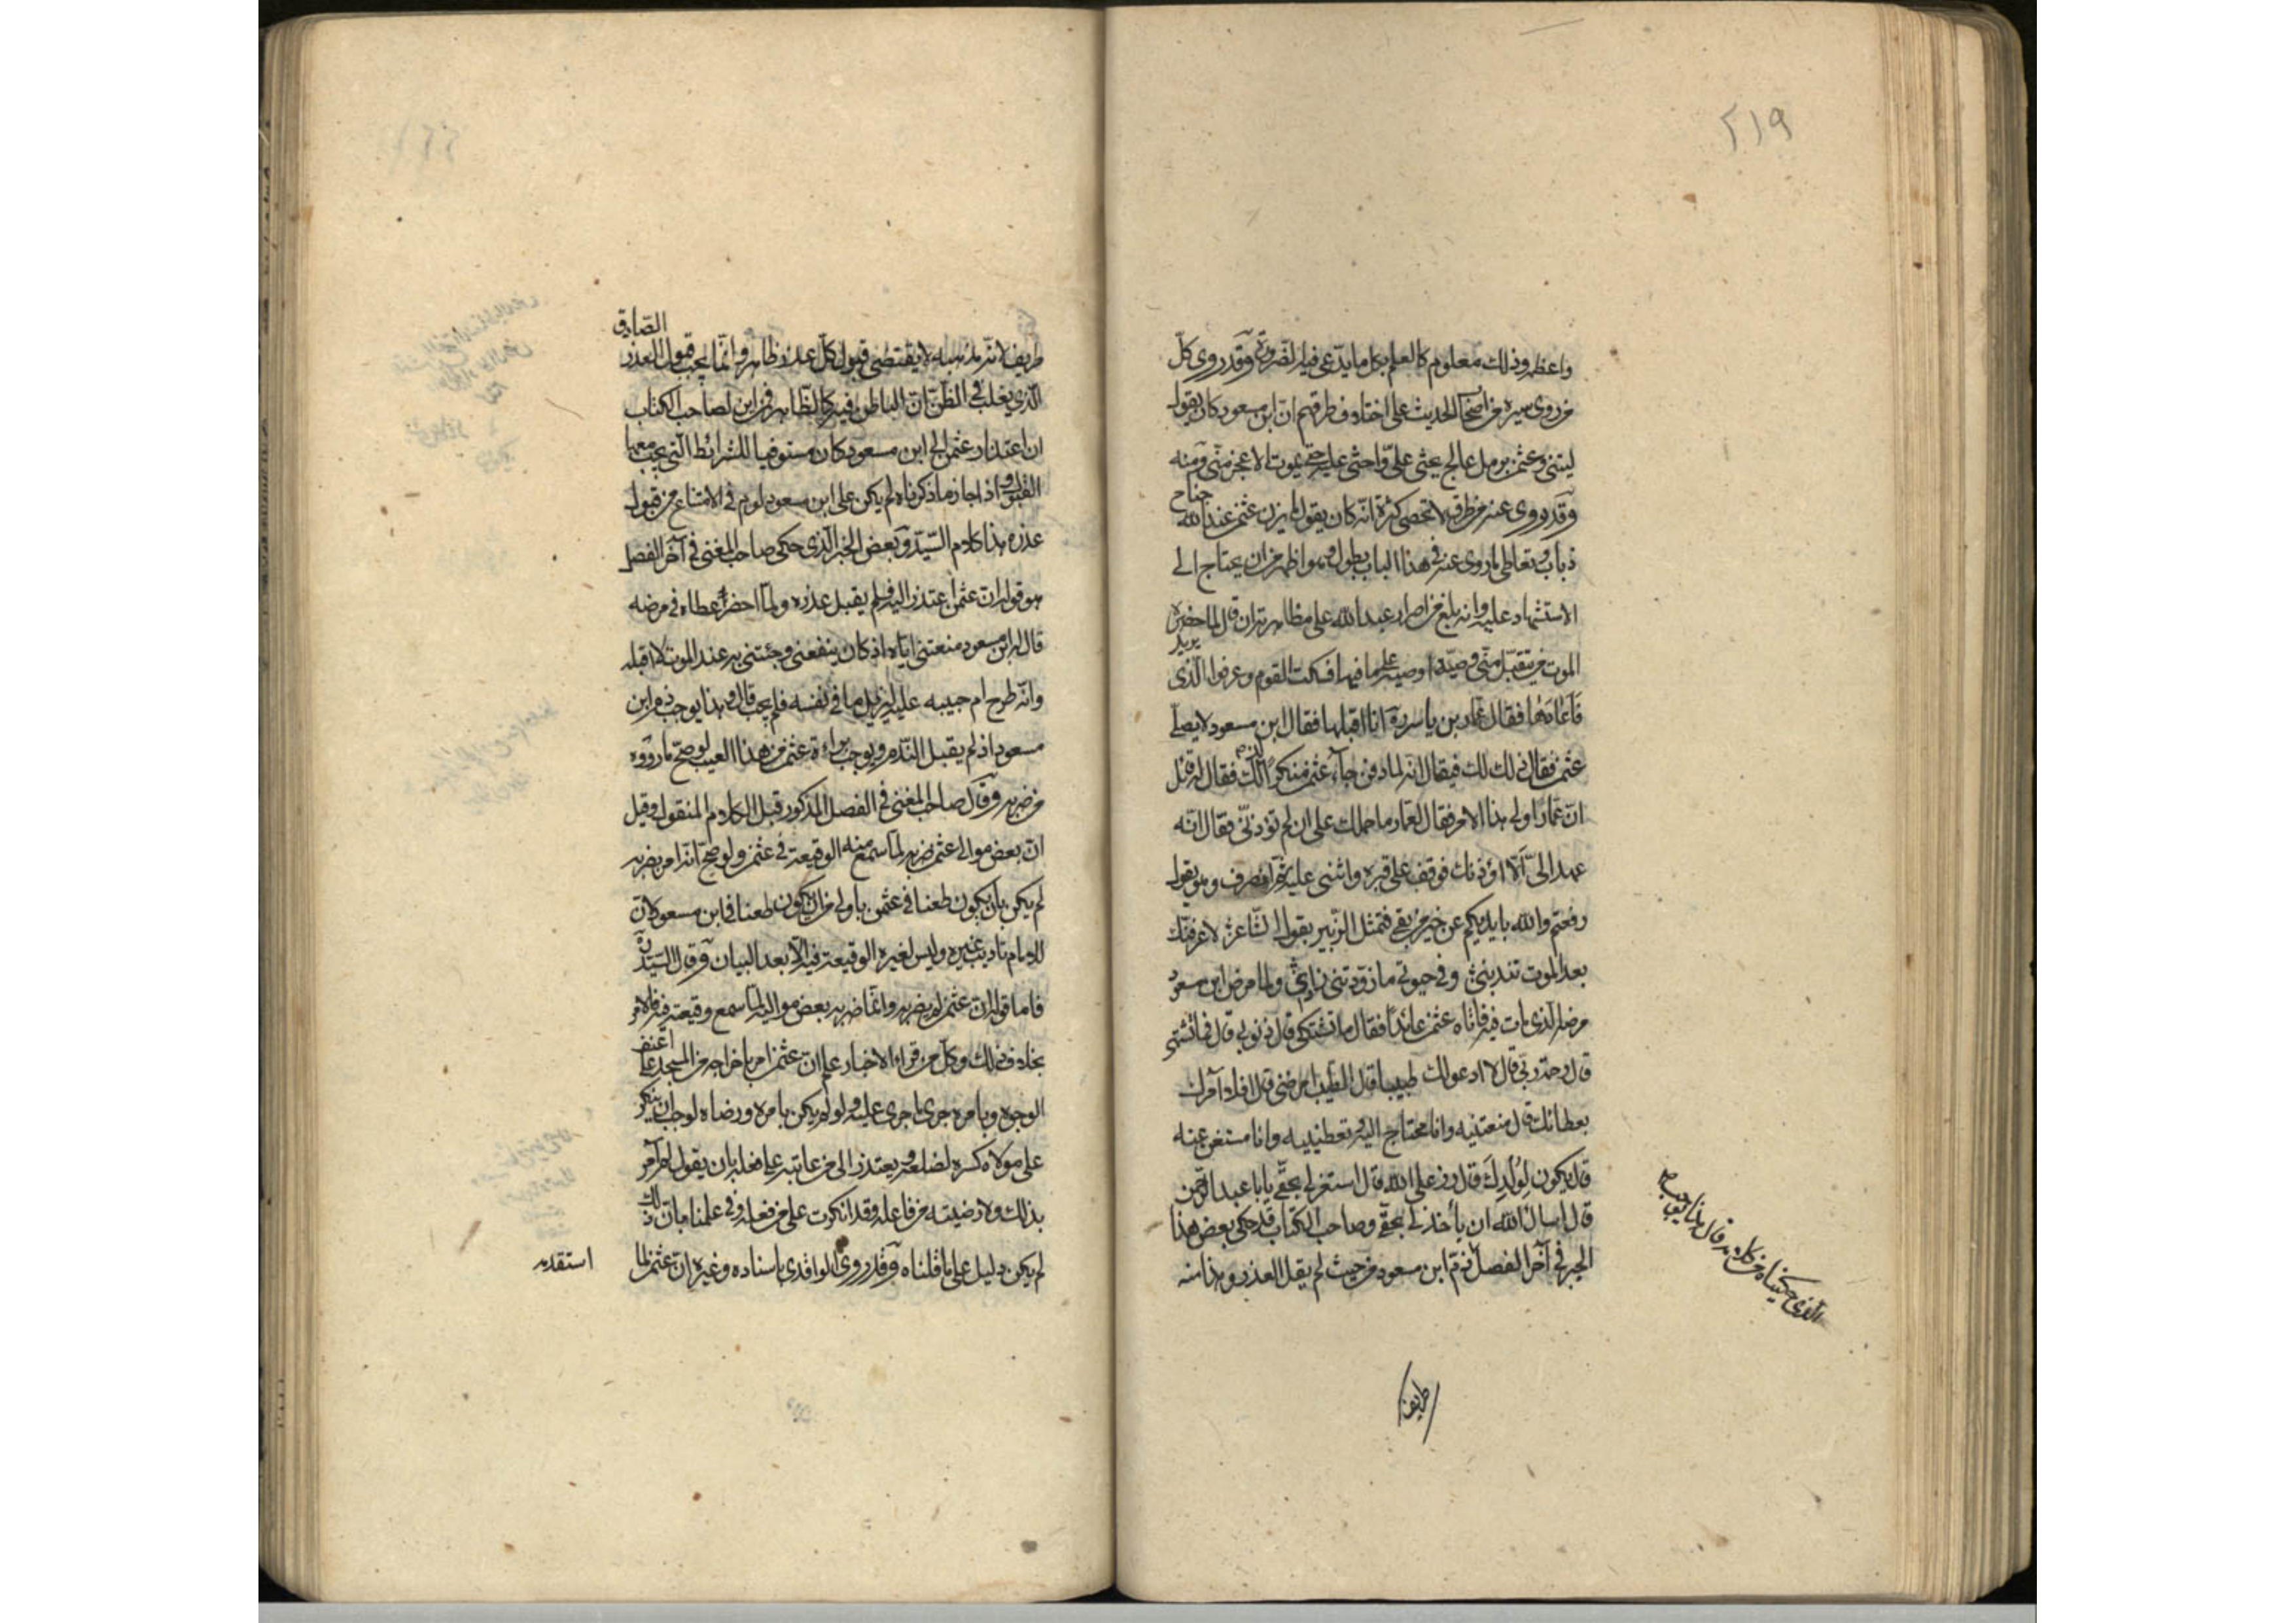 ٢١٩
واعظم وذلك معلوم كالعلم بكل ما يدّعى فيه الضّرورة وقد روى كلّ
من روى سيره من اصحاب الحديث على اختلاف طرقهم انّ ابن مسعود كان يقول
ليتنى وعثمن برمل عالج يحثى علىّ واحثى عليه حتى يموت الاعجز منّى ومنه
وقد روى عنه من طرق لا تحصى كثرة انّه كان يقول ما يزن عثمن عند الله جناح
ذباب وتعاطى ما روى عنه فى هذا الباب يطول وهو اظهر من ان يحتاج الى
الاستشهاد عليه وانه بلغ من اصرار عبد الله على مظاهرته ان قال لما حضره
الموت من يتقبّل منّى وصيّة اوصيه على ما فيها فسكت القوم وعرفوا الّذى يريد
فاعادها فقال عمّار بن ياسر ره انا اقبلها فقال ابن مسعود لا يصلّى
عثمن فقال ذلك لك فيقال انه لما دفن جاء عثمن منكرا لذلك فقال له قائل
انّ عمّارا ولى هذا الامر فقال لعمّار ما حملك على ان لم تؤذنّى فقال انّه
عهد الىّ الّا اؤذنك فوقف على قبره واثنى عليه ثمّ انصرف وهو يقول
رفعتم والله بايديكم عن خير من بقى فتمثل الزّبير بقول الشّاعر لاعرفنّك
بعد الموت تندبنى وفى حيوتى ما زوّدتنى زادى ولما مرض ابن مسعود
مرضه الّذى مات فيه فاتاه عثمن عائدًا فقال ما تشتكى قال ذنوبى قال فما تشتهى
قال رحمة ربى قال الا ادعو لك طبيبا قال الطّبيب امرضنى قال افلا آمر لك
بعطائك قال منعتنيه وانا محتاج اليه وتعطينيه وانا مستغن عنه
قال يكون لِوُلْدِكَ قال رزقهم على الله قال استغفر لى يا ابا عبد الرّحمن
قال اسال الله ان يأخذ لى بحقّى وصاحب الكتاب قد حكى بعض هذا
الخبر فى آخر الفصل ذمّ ابن مسعود من حيث لم يقبل العذر وهذا منه
الّذى حكيناه من كلامه قال هذا يوجب
طريف
طريف لانّ مذهبه لا يقتضى قبول كلّ عذر ظاهر وانّما يجب قبول العذر الصّادق
الّذى يغلب فى الظّنّ انّ الباطن فيه كالظّاهر فمن اين لصاحب الكتاب
ان اعتذار عثمن الى ابن مسعود كان مستوفيا للشرائط الّتى يجب معها
القبول واذا جاز ما ذكرناه لم يكن على ابن مسعود لوم فى الامتناع من قبول
عذره هذا كلام السّيّد وبعض الخبر الّذى حكى صاحب المغنى فى آخر الفصل
هو قوله انّ عثمن اعتذر اليه فلم يقبل عذره ولمّا احضر عطاه فى مرضه
قال ابن مسعود منعتنى ايّاه اذ كان ينفعنى وجئتنى به عند الموت لا اقبله
وانّه طرح ام حبيبه عليه ليزيل ما فى نفسه فلم يجب قال وهذا يوجب ذم ابن
مسعود اذ لم يقبل النّدم ويوجب براءة عثمن من هذا العيب لو صحّ ما رووه
من ضربه وقال صاحب المغنى فى الفصل المذكور قبل الكلام المنقول وقيل
انّ بعض موالى عثمن ضربه لمّا سمع منه الوقيعة فى عثمن ولو صحّ انّه امر بضربه
لم يكن بان يكون طعنا فى عثمن باولى من ان يكون طعنا فى ابن مسعود لانّ
للامام تاديب غيره وليس لغيره الوقيعة فيه الّا بعد البيان وقال السّيّد ره
فاما قوله انّ عثمن لم يضربه وانّما ضربه بعض مواليه لمّا سمع وقيعته فيه فالامر
بخلاف ذلك وكلّ من قراء الاخبار علم انّ عثمن امر باخراجه من المسجد على اعنف
الوجوه وبامره جرى ما جرى عليه ولو لم يكن بامره ورضاه لوجب ان ينكر
على مولاه كسره لضلعه ويعتذر الى من عاتبه على فعله بان يقول لم آمر
بذلك ولا رضيته من فاعله وقد انكرت على من فعله وفى علمنا بانّ ذلك
لم يكن دليل على ما قلناه وقد روى الواقدى باسناده وغيره انّ عثمن لما
استقدمه